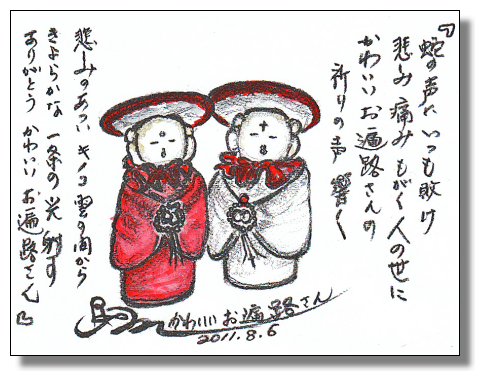 『蛇の声に いつも敗け
悲しみ 痛み もがく 人の世に
かわいい お遍路さんの
祈りの声 響く
悲しみのあつい キノコ雲の間から
きよらかな 一条の光 射す
ありがとう かわいい お遍路さん』
かわいい お遍路さん
2011.8.6